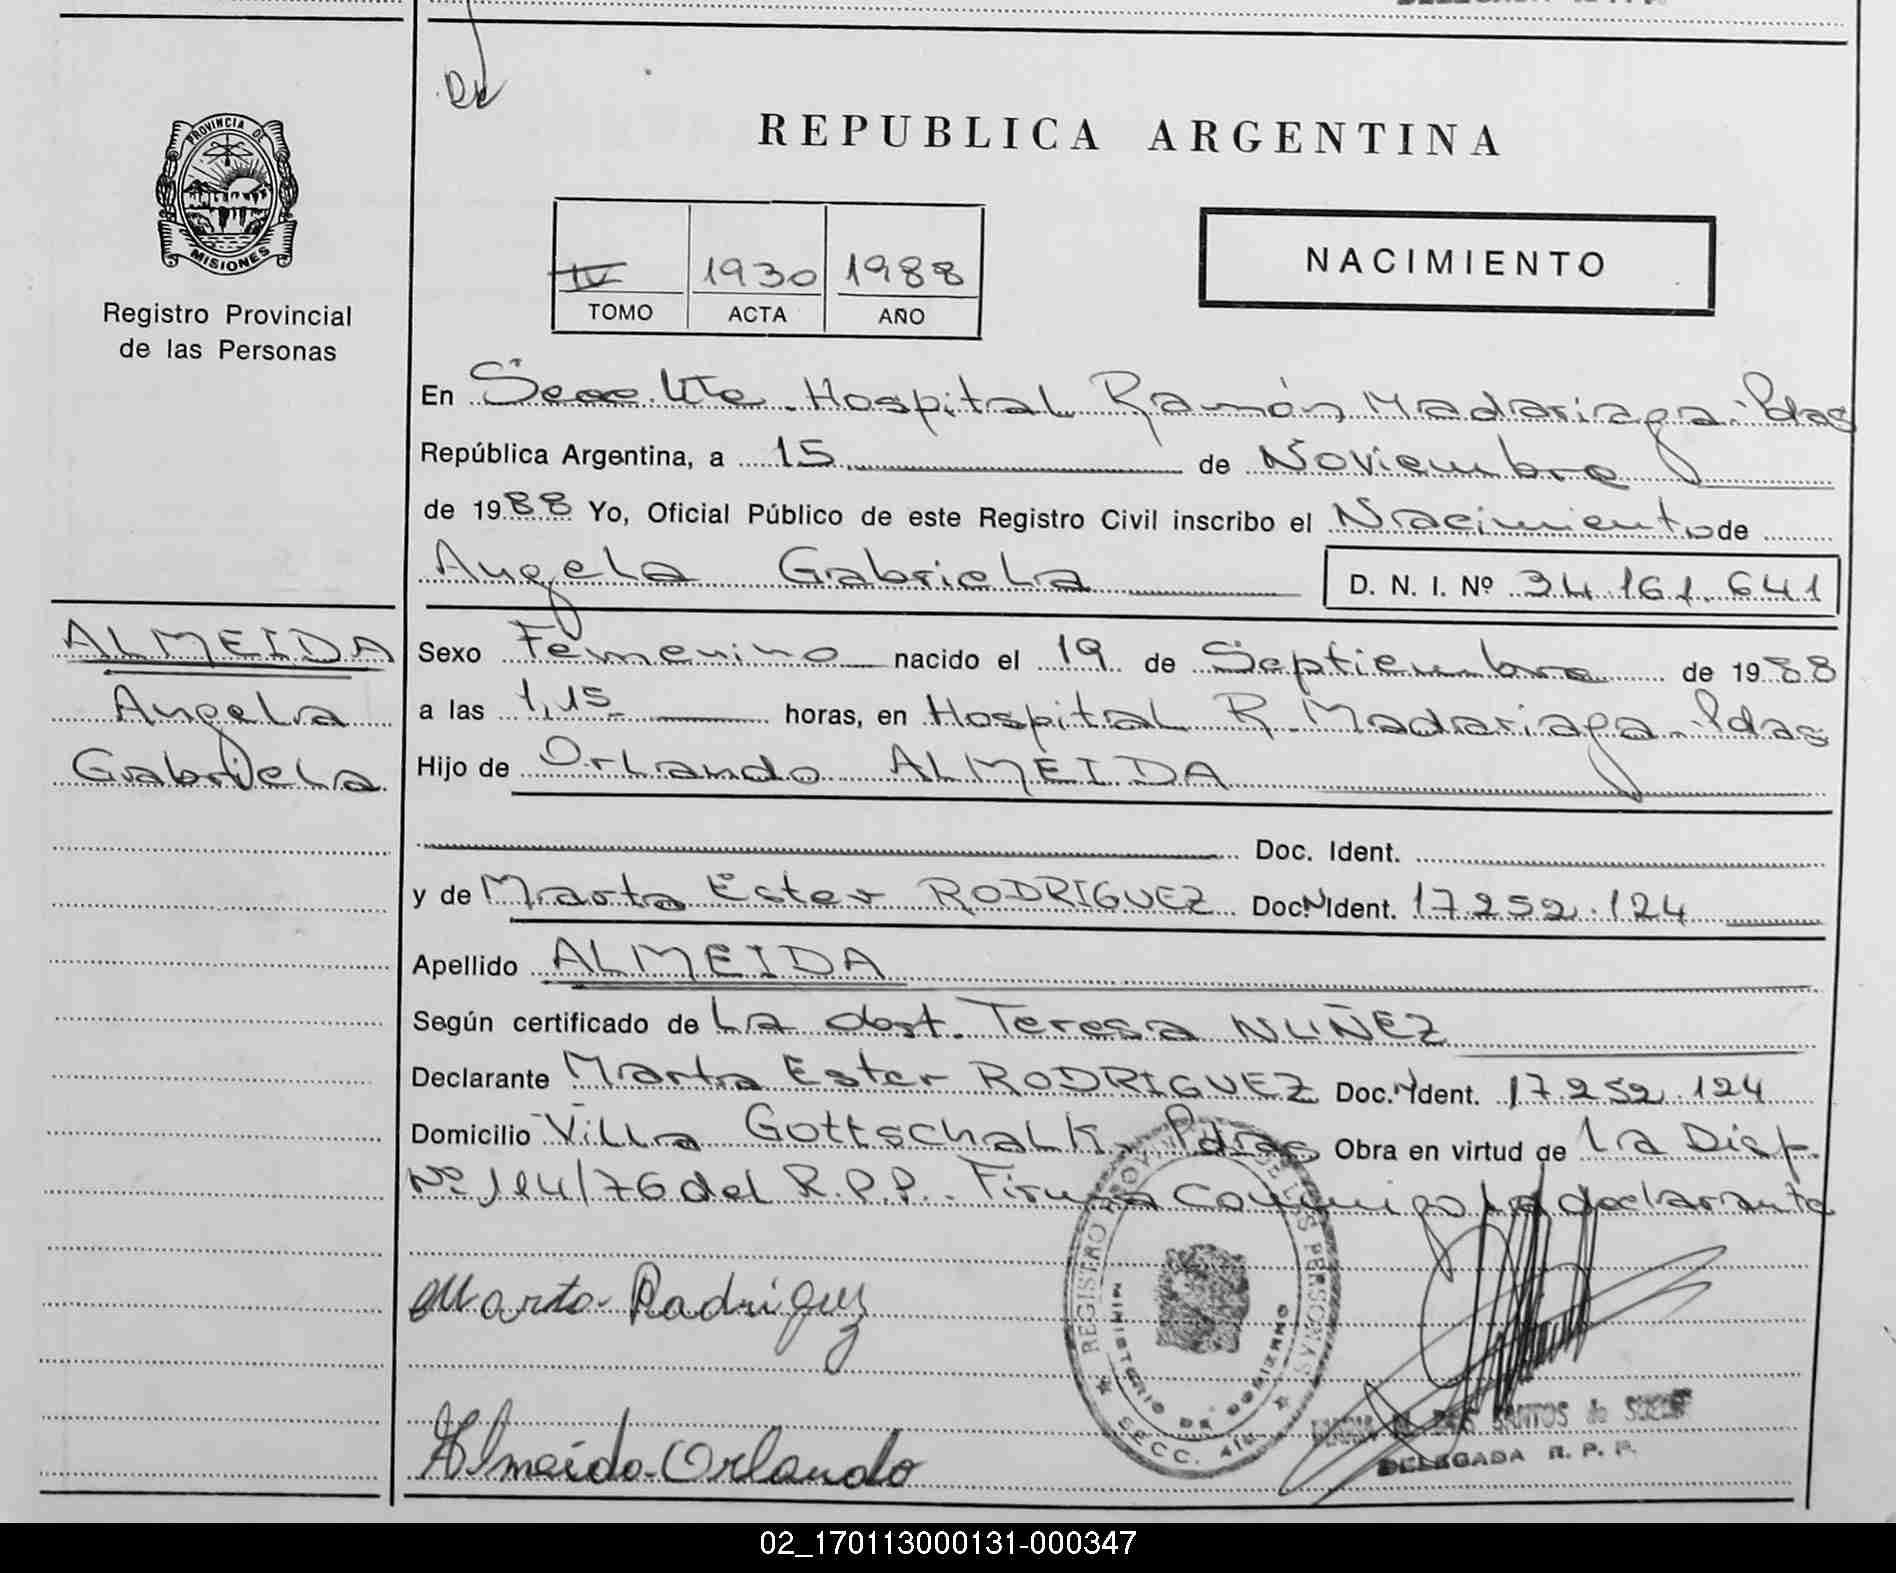 REPUBLICA ARGENTINA
PROVINCIA DE
MISIONES
Registro Provincial
de las Personas
IV 1930 1988
TOMO ACTA AÑO
NACIMIENTO
En Secc. 4ta. Hospital Ramón Madariaga. Pdas
República Argentina, a 15 de Noviembre
de 1988 Yo, Oficial Público de este Registro Civil inscribo el Nacimiento de
Angela Gabriela D. N. I. Nº 34.161.641
ALMEIDA
Angela
Gabriela
Sexo Femenino nacido el 19 de Septiembre de 1988
a las 1,15 horas, en Hospital R. Madariaga. Pdas
Hijo de Orlando ALMEIDA
Doc. Ident.
y de Marta Ester RODRIGUEZ Doc. N Ident. 17.252.124
Apellido ALMEIDA
Según certificado de La obst. Teresa NUÑEZ
Declarante Marta Ester RODRIGUEZ Doc. N Ident. 17.252.124
Domicilio Villa Gottschalk, Pdas Obra en virtud de la Disp.
Nº 114/76 del R.P.P. Firma conmigo la declarante
Marta Rodriguez
REGISTRO PROV. DE LAS PERSONAS
MINISTERIO DE GOBIERNO
SECC. 4ta
Almeida Orlando
DOS SANTOS de
DELEGADA R. P. P.
02_170113000131-000347